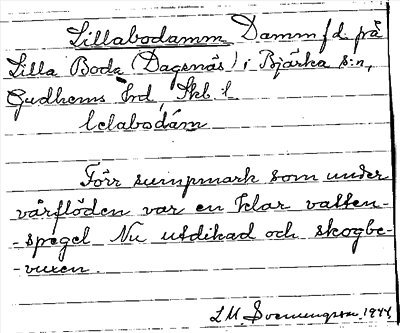 Lillabodamm Damm f.d. på
Lilla Boda (Dagsnäs) i Bjärka s:n,
Gudhems hd, Skb. l.
lelabodám
Förr sumpmark som under
vårflöden var en klar vatten-
-spegel Nu utdikad och skogbe-
-vuxen.
L.M. Svenungsson 1944.